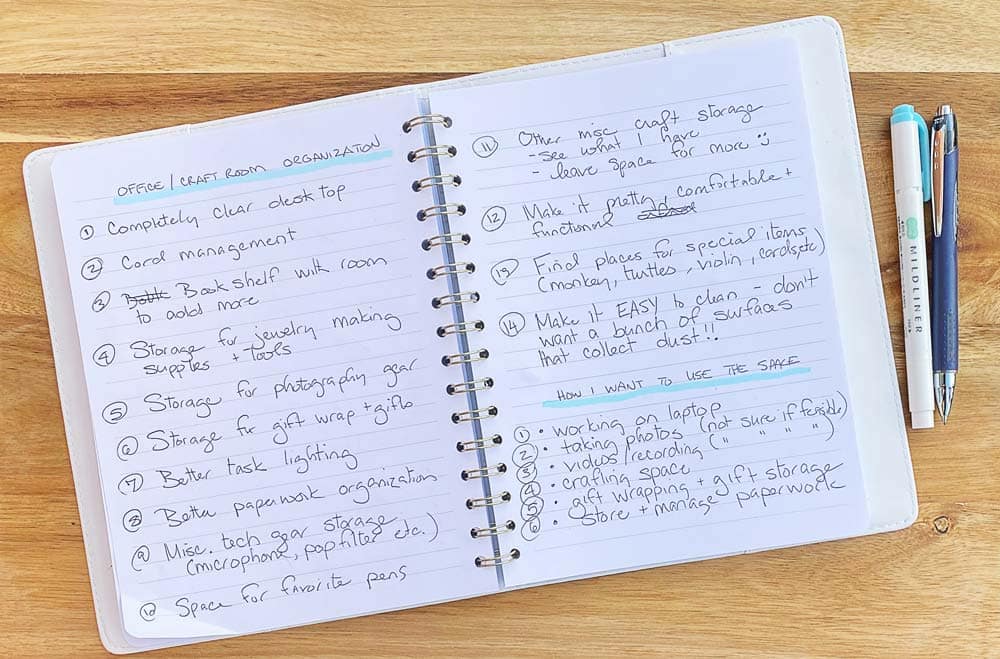 OFFICE / CRAFT ROOM ORGANIZATION
① Completely clear desktop
② Cord management
③ Book shelf with room
to add more
④ Storage for jewelry making
supples + tools
⑤ Storage for photography gear
⑥ Storage for gift wrap + gifts
⑦ Better task lighting
⑧ Better paperwork organization
⑨ Misc. tech gear storage
(microphone, pop filter etc.)
⑩ Space for favorite pens
⑪ Other misc craft storage
- see what I have
- leave space for more
⑫ Make it pretty comfortable +
functional
⑬ Find places for special items
(monkey, turtles, violin, cards, etc)
⑭ Make it EASY to clean - don't
want a bunch of surfaces
that collect dust!!
HOW I WANT TO USE THE SPACE
① • working on laptop
② • taking photos (not sure if feasible)
③ • videos/recording (" " " ")
④ • crafting space
⑤ • gift wrapping + gift storage
⑥ • store + manage paperwork
MILDLINER